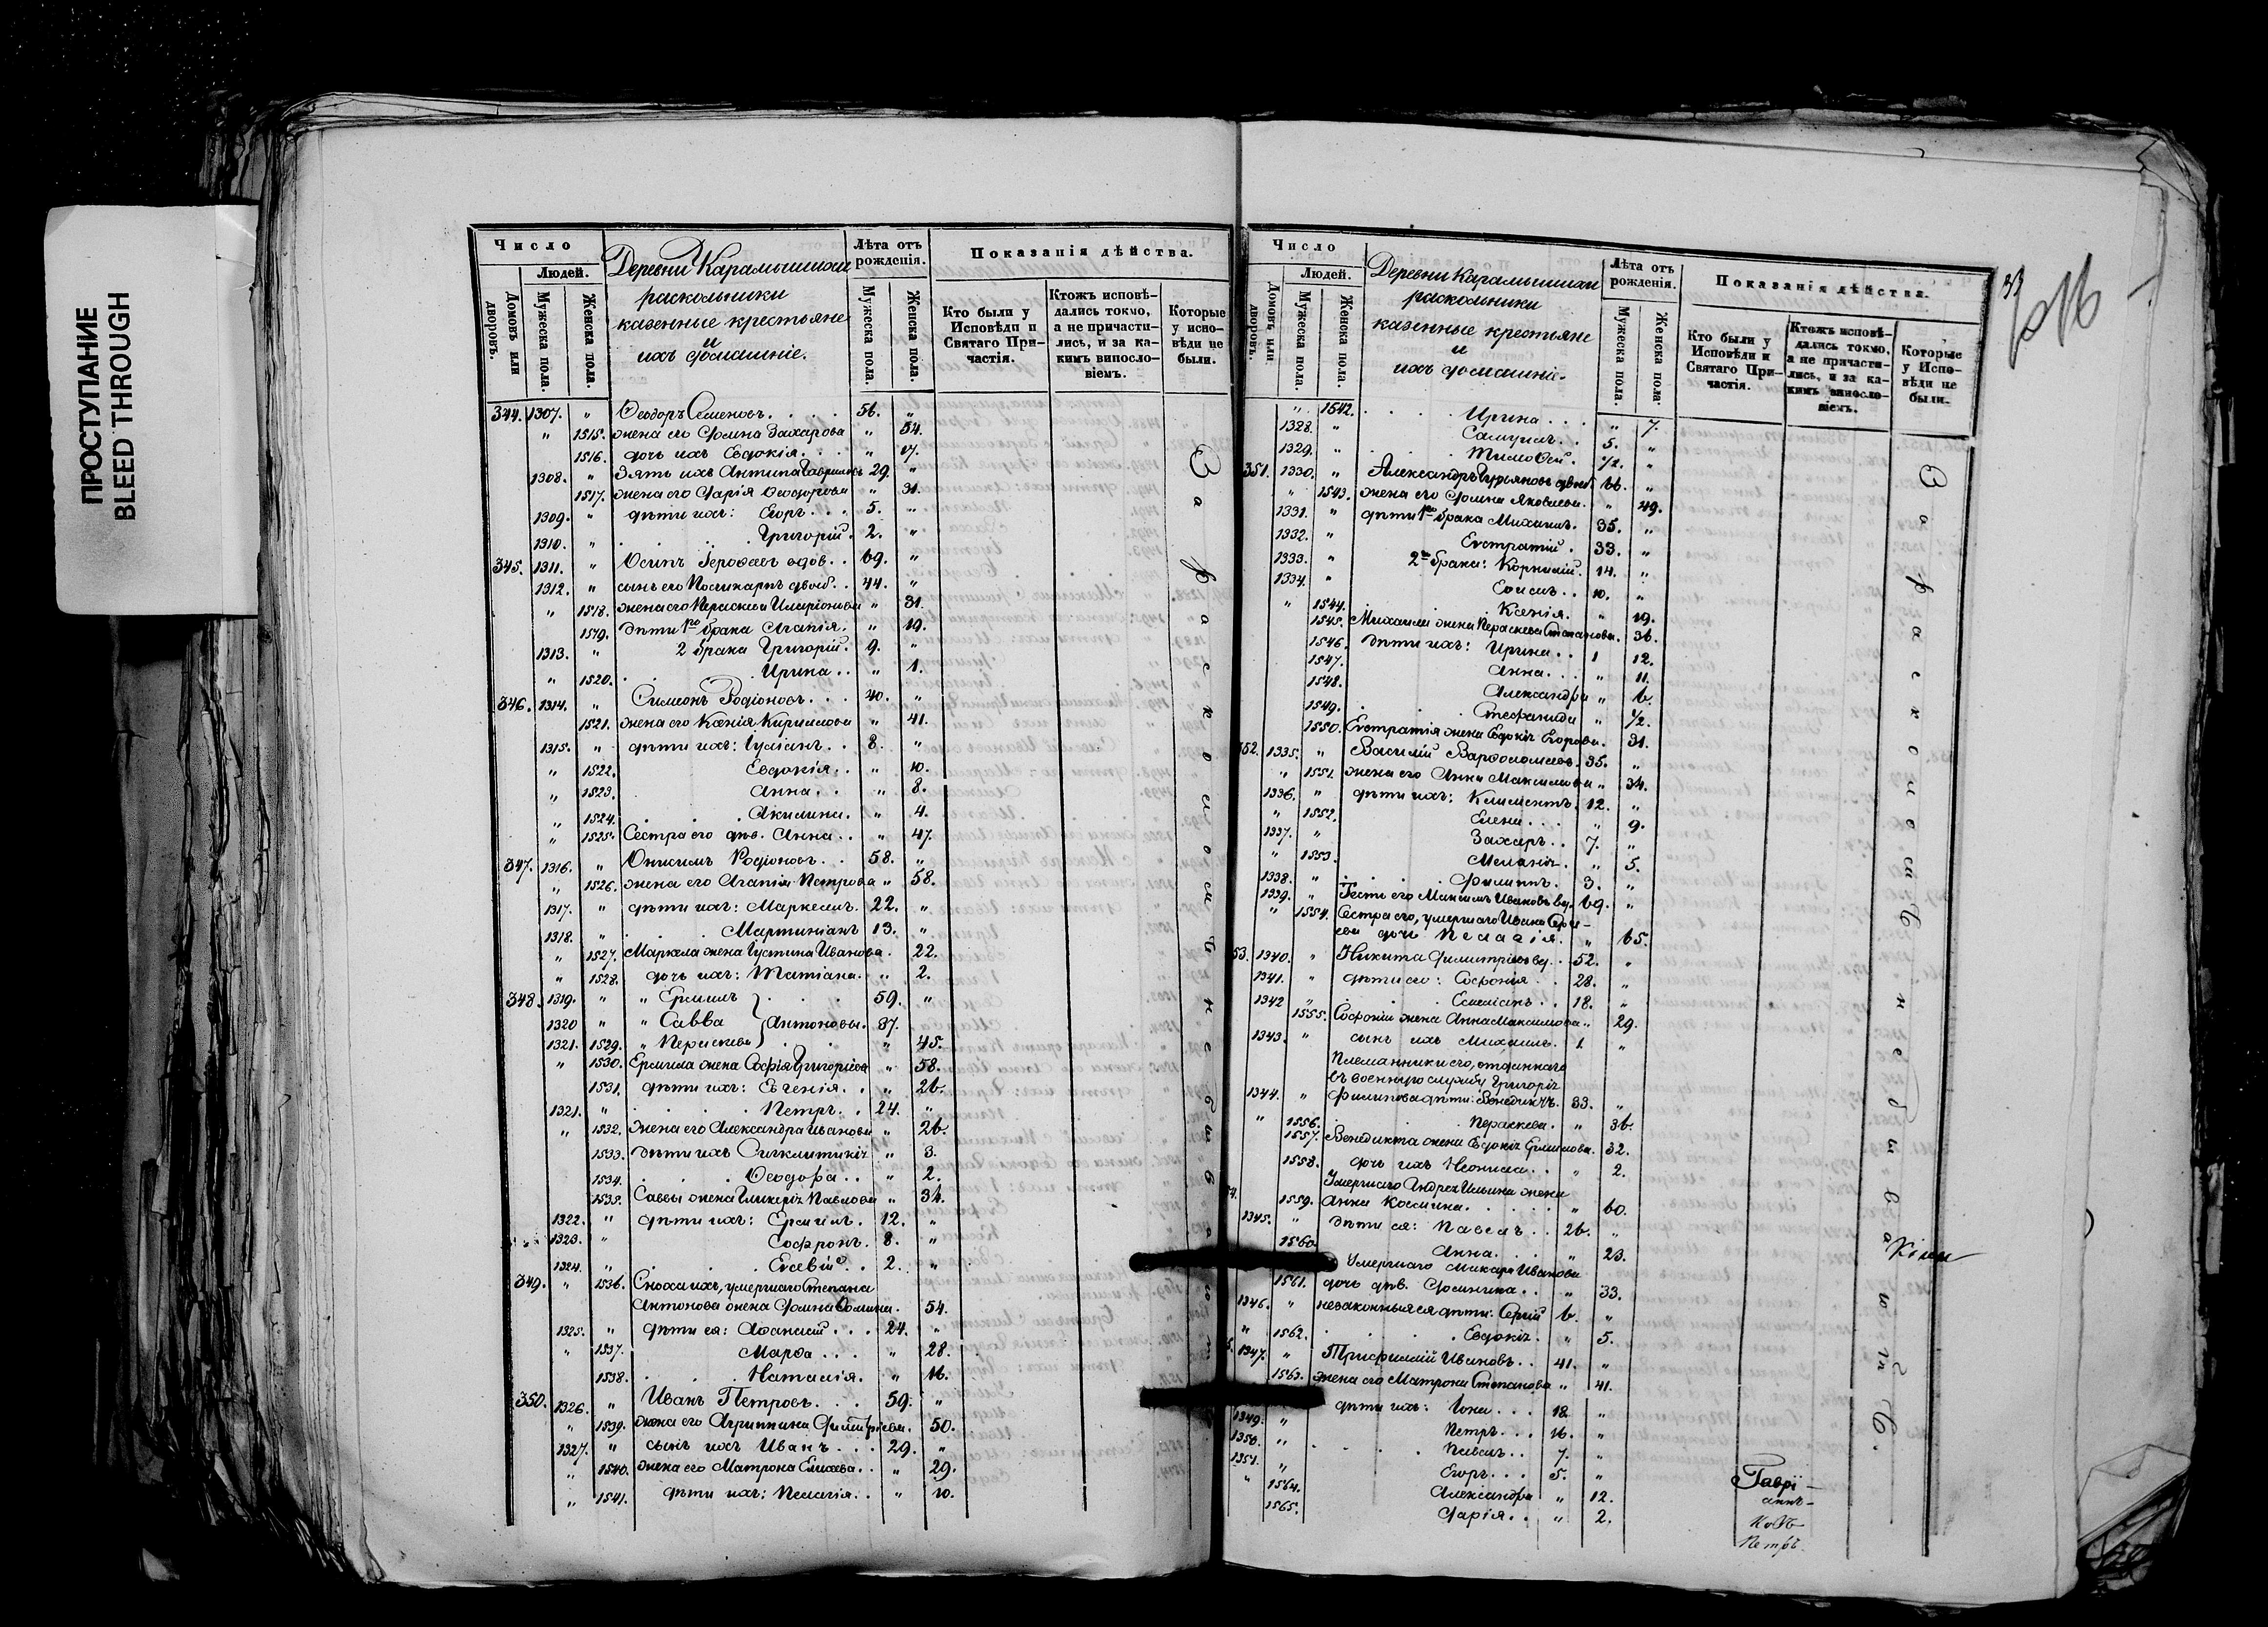 ПРОСТУПАНИЕ
BLEED THROUGH
Число
Людей.
Домовъ или дворовъ.
Мужеска пола.
Женска пола.
Деревни Карамышихи
раскольники
казенные крестьяне
и
ихъ домашніе.
Лѣта отъ рожденія.
Мужеска пола.
Женска пола.
Показанія дѣйства.
Кто были у Исповѣди и Святаго Причастія.
Ктожъ исповѣдались токмо, а не причастились, и за какимъ винословіемъ.
Которые у исповѣди не были.
344. 1307. " Ѳеодоръ Семеновъ. 56. "
" 1515. жена его Домна Захарова " 54.
1516. дочь ихъ Евдокія. " 17.
1308. " Зять ихъ Антипа Гавриловъ 29. "
1517. жена его Дарія Ѳеодорова " 31.
1309. " дѣти ихъ: Егоръ. 5. "
1310. " Григорій. 2. "
345. 1311. " Осипъ Іероѳеевъ вдов. 69. "
1312. " сынъ его Поликарпъ двоеб. 44. "
" 1518. жена его Параскева Иларіонова " 31.
1519. дѣти 1го брака Агапія. " 19.
1313. " 2 брака Григорій. 9. "
" 1520. Ирина. " 1.
346. 1314. " Симеонъ Родіоновъ. 40. "
1521. жена его Ксенія Кириллова " 41.
1315. " дѣти ихъ: Іуліанъ. 8. "
" 1522. Евдокія. " 10.
" 1523. Анна. " 8.
" 1524. Акилина. " 4.
" 1525. Сестра его дѣв. Анна. " 47.
347. 1316. " Онисимъ Родіоновъ. 58. "
" 1526. жена его Агапія Петрова " 58.
1317. " дѣти ихъ: Маркеллъ. 22. "
1318. " Мартиніанъ 13. "
" 1527. Маркела жена Іустина Иванова. 22.
" 1528. дочь ихъ: Татіана. " 2.
348. 1319. " " Ермилъ } 59. "
1320 " " Савва } Антоновы. 37.
1321. 1529. " Параскева } " 45.
" 1530. Ермила жена Софія Григоріева " 58.
1531. дѣти ихъ: Евгенія. " 26.
1321. " Петръ. 24. "
" 1532. жена его Александра Иванова " 26.
1533. дѣти ихъ Синклитикія " 3.
1534. Ѳеодора. " 2.
1535. Саввы жена Гликерія Павлова " 34.
1322. " дѣти ихъ: Ермилъ. 12. "
1323. " Софронъ. 8. "
1324. " Евсевій. 2. "
349. " 1536. Сноха ихъ, умершаго Степана
Антонова жена Домна Ѳомина. 54.
1325. " дѣти ея: Аѳанасій. 24. "
" 1537. Марѳа. " 28.
1538. Наталія. " 16.
350. 1326. " Иванъ Петровъ. 59. "
" 1539. жена его Агриппина Димитріева. 50.
1327. " сынъ ихъ Иванъ. 29. "
" 1540. жена его Матрона Елисеева. " 29.
" 1541. дѣти ихъ: Пелагія. " 10.
За расколомъ не бываютъ
Число
Людей.
Домовъ или дворовъ.
Мужеска пола.
Женска пола.
Деревни Карамышихи
раскольники
казенные крестьяне
и
ихъ домашніе.
Лѣта отъ рожденія.
Мужеска пола.
Женска пола.
Показанія дѣйства.
Кто были у Исповѣди и Святаго Причастія.
Ктожъ исповѣдались токмо, а не причастились, и за какимъ винословіемъ.
Которые у Исповѣди не были.
" 1542. Ирина. " 7.
1328. " Самуилъ. 5. "
1329. " Тимоѳей. 1/2. "
351. 1330. " Александръ Гурьяновъ двоеб. 66. "
" 1543. жена его Домна Яковлева. " 49.
1331. " дѣти 1го брака Михаилъ. 35. "
1332. " Евстратій. 33. "
1333. " 2го брака: Корнилій. 14. "
1334. " Елисей. 10. "
" 1544. Ксенія. " 19.
1545. Михаила жена Параскева Степанова. 36.
1546. дѣти ихъ: Ирина. 12.
1547. Анна. " 11.
1548. Александра " 6.
1549. Стефанида " 1/2.
1550. Евстратія жена Евдокія Егорова. 31.
352. 1335. " Василій Варѳоломеевъ. 35. "
" 1551. жена его Анна Максимова " 34.
1336. " дѣти ихъ: Климентъ. 12. "
" 1552. Елена. " 9.
1337. " Захаръ. 7. "
" 1553. Меланія. " 5.
1338. " Филиппъ. 3. "
1339. " Тесть его Максимъ Ивановъ вд. 69. "
" 1554. Сестра его, умершаго Ивана
дочь Пелагія. " 65.
53. 1340. " Никита Димитріевъ вд. 52. "
1341. " дѣти его: Софонія. 28. "
1342 " Емеліанъ. 18. "
1555. Софоніи жена Анна Максимова " 29.
1343. " сынъ ихъ Михаилъ. 1. "
Племянники его, отданнаго
въ военную службу Григорія
1344. " Филипова дѣти: Венедиктъ. 33. "
" 1556. Параскева. " 36.
1557. Венедикта жена Евдокія Ермилова. 32.
1558. дочь ихъ Неонила. " 2.
Умершаго Андрея Ильина жена
1559. Анна Космина. " 60.
1345. " дѣти ея: Павелъ. 26. "
1560. Анна. " 23.
Умершаго Макара Иванова
1561. дочь дѣв. Домникія. " 33.
1346. " незаконныя ея дѣти: Сергій 6. "
" 1562. Евдокія. " 5.
1347. " Трифиллій Ивановъ. 41. "
1563. жена его Матрона Степанова " 41.
дѣти ихъ: Іона. 18. "
1349. " Петръ. 16. "
1350. " Павелъ. 7. "
1351. " Егоръ. 5. "
" 1564. Александра " 12.
1565. Дарія. " 2.
За расколомъ не бываютъ.